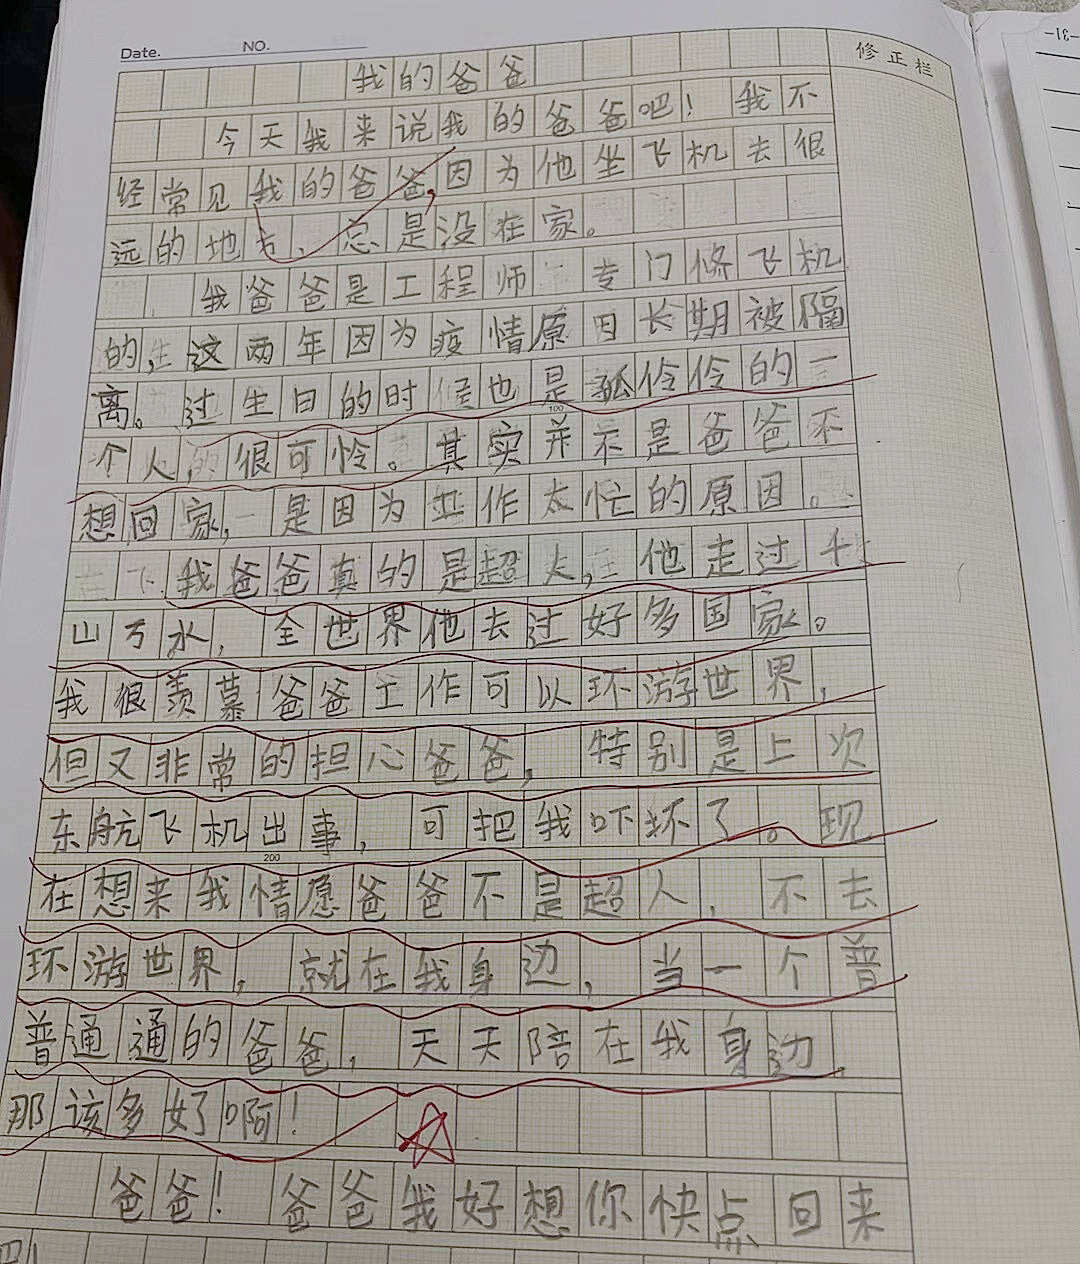 Date. NO.
修正栏
我的爸爸
今天我来说我的爸爸吧！我不
经常见我的爸爸，因为他坐飞机去很
远的地方、总是没在家。
我爸爸是工程师 专门修飞机
的，这两年因为疫情原因长期被隔
离。过生日的时候也是孤伶伶的一
100
个人，很可怜。其实并不是爸爸不
想回家，是因为工作太忙的原因。
我爸爸真的是超人，他走过千
山万水，全世界他去过好多国家。
我很羡慕爸爸工作可以环游世界，
但又非常的担心爸爸，特别是上次
东航飞机出事，可把我吓坏了。现
200
在想来我情愿爸爸不是超人，不去
环游世界，就在我身边，当一个普
普通通的爸爸，天天陪在我身边，
那该多好啊！
爸爸！爸爸我好想你快点回来
吧！